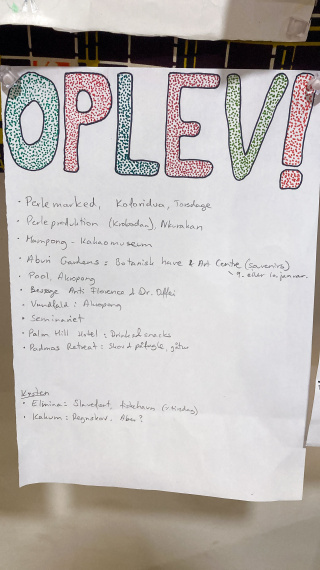 OPLEV!
· Perlemarked, Koforidua, Torsdage
· Perleproduktion (Krobodan), Nkurakan
· Mampong - Kakaomuseum
· Aburi Gardens: Botanisk have & Art Centre (souvenirs)
9. eller in januar.
· Pool, Akropong
· Besøge Anti Florence & Dr. Offei
· Vandfald: Akropong
· Seminariet
· Palm Hill Hotel: Drinks & snacks
· Padmas Retreat: Skov & påfugle,
Kysten
· Elmina: Slavefort, fiskehavn (
· Kakum: Regnskov. Aber?